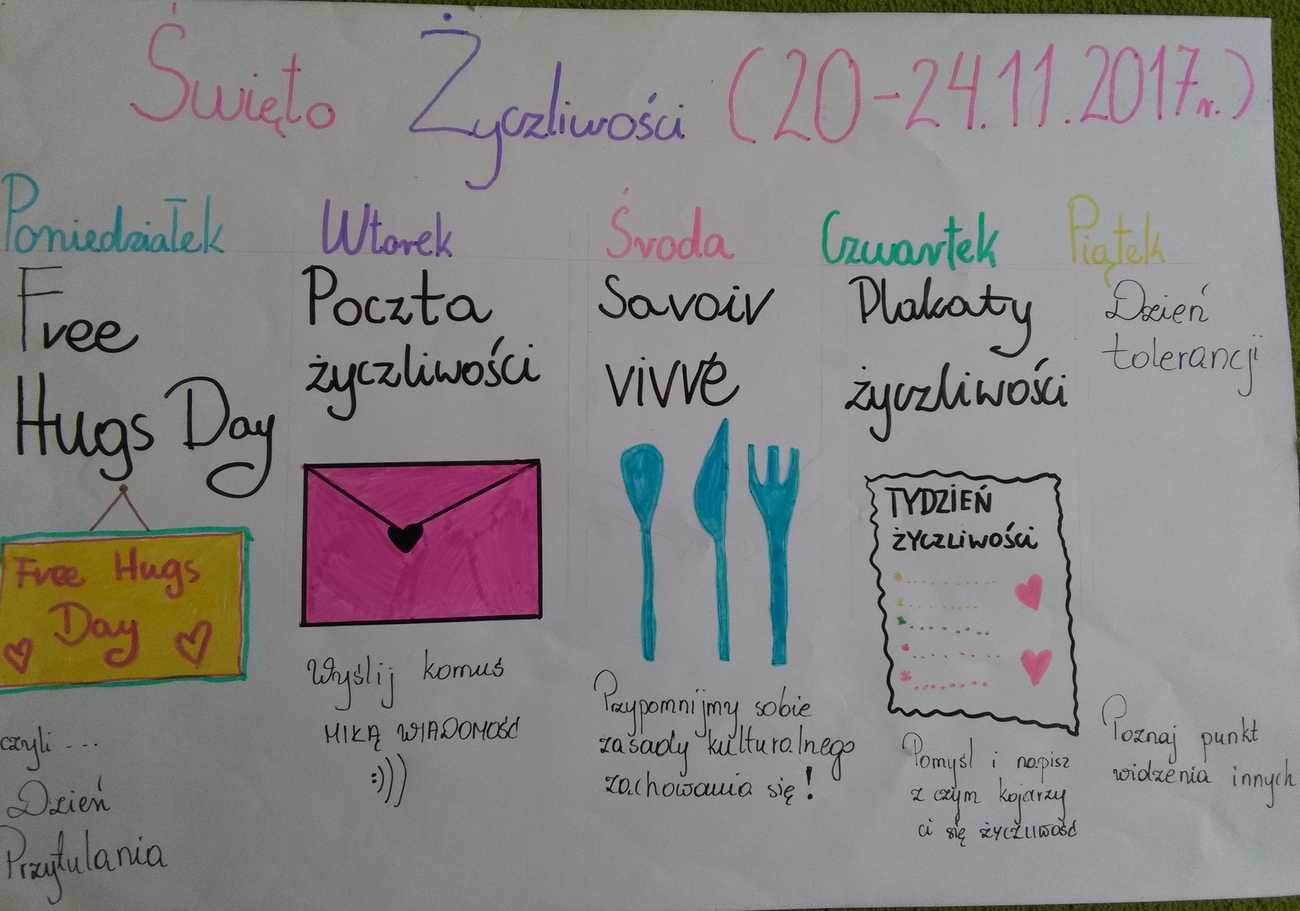 Święto Życzliwości (20-24.11.2017r.)
Poniedziałek
Free
Hugs Day
Free Hugs
Day
czyli ...
Dzień
Przytulania
Wtorek
Poczta
życzliwości
Wyślij komuś
MIŁĄ WIADOMOŚĆ
:)))
Środa
Savoir
vivre
Przypomnijmy sobie
zasady kulturalnego
zachowania się!
Czwartek
Plakaty
życzliwości
TYDZIEŃ
ŻYCZLIWOŚCI
Pomyśl i napisz
z czym kojarzy
ci się życzliwość
Piątek
Dzień
tolerancji
Poznaj punkt
widzenia innych